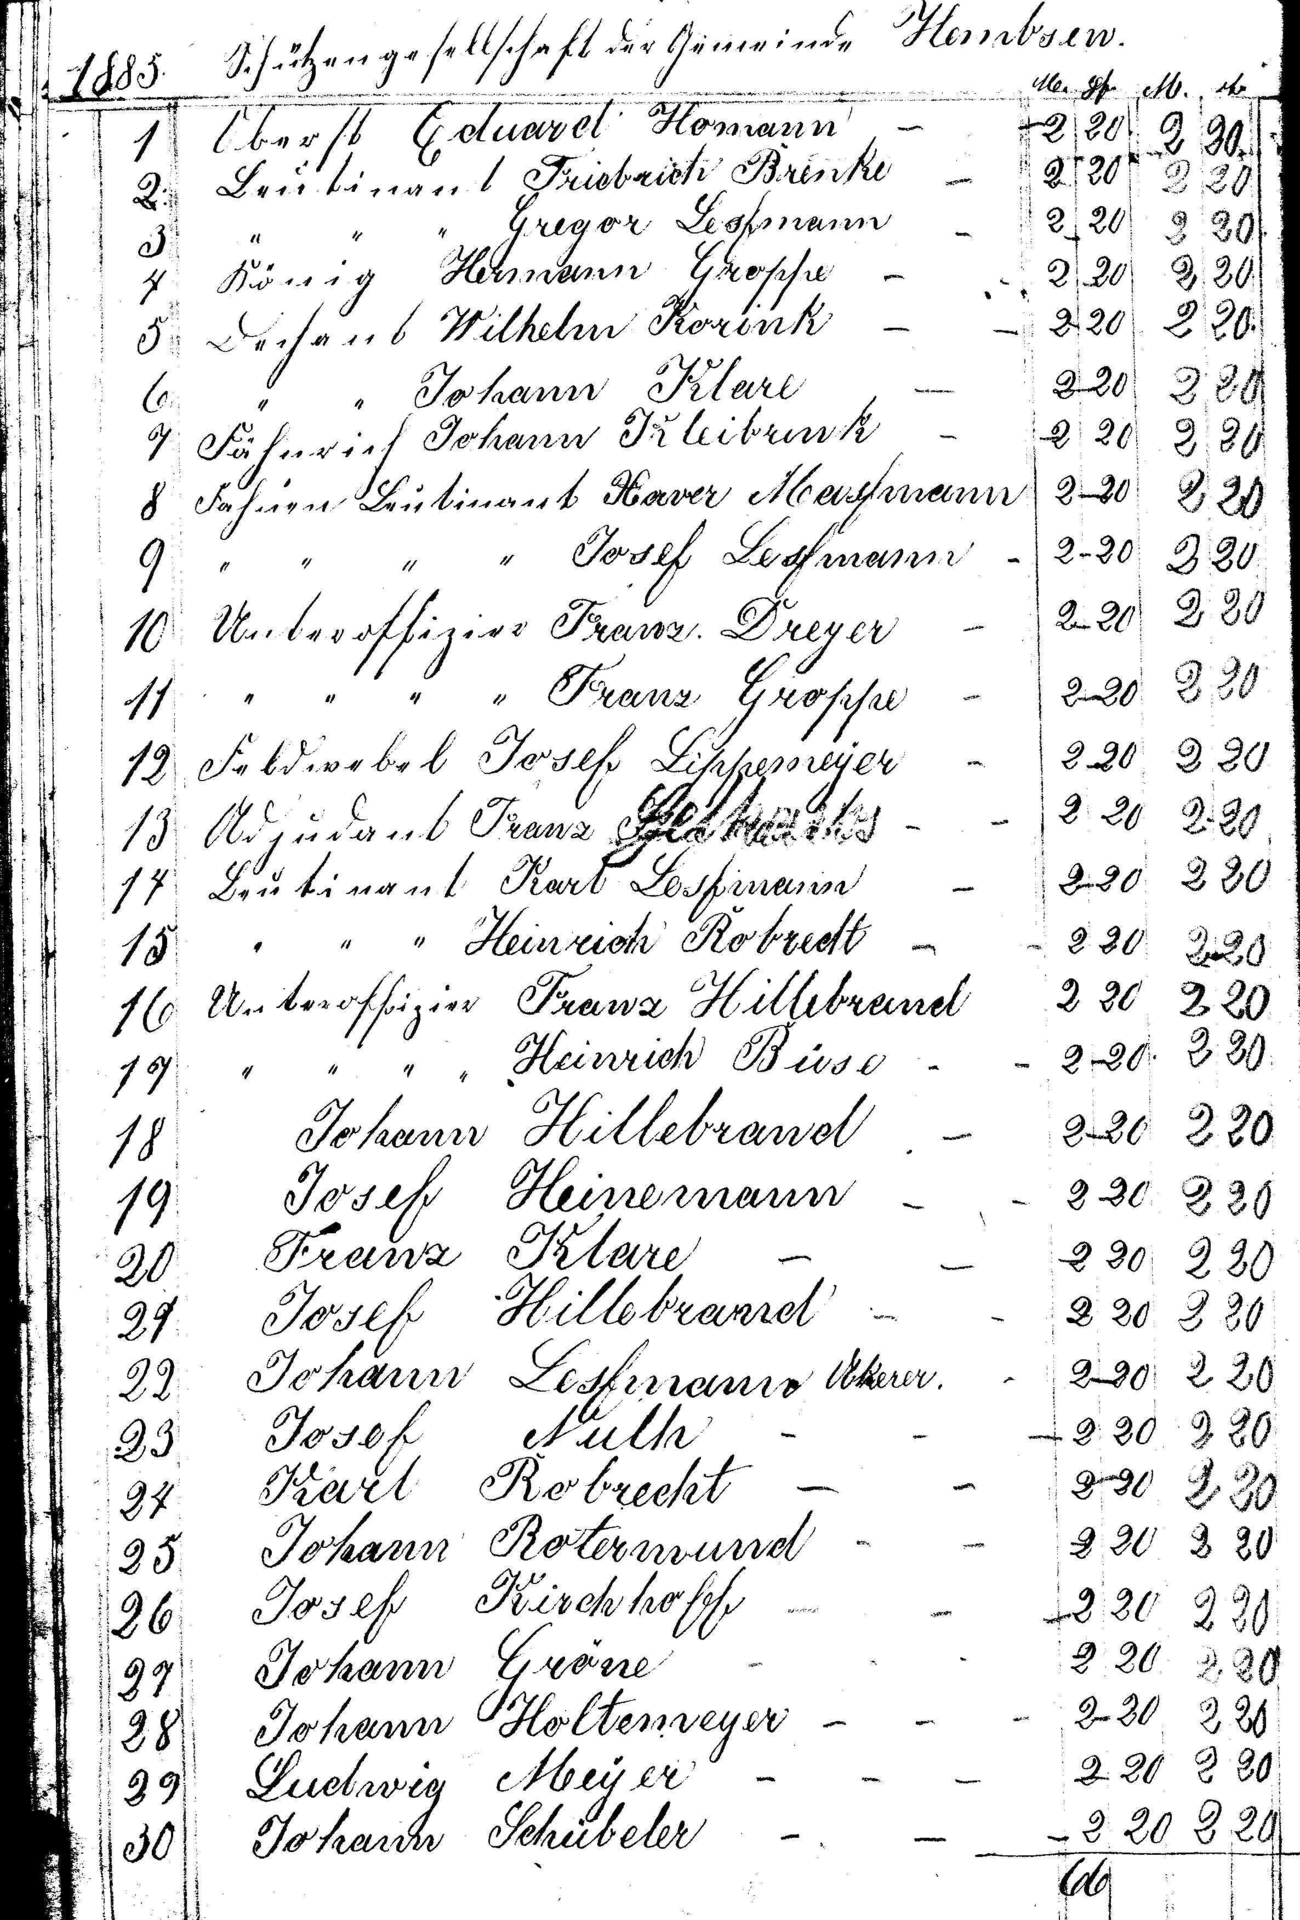 1885. Schützengesellschaft der Gemeinde Hembsen.
M. Pf. M. Pf.
1 Oberst Eduard Homann — 2 20 2 20
2. Leutinant Friedrich Brenke — 2 20 2 20
3 " " " Gregor Leßmann - 2 20 2 20
4 König Hermann Groppe - 2 20 2 20
5 Dechant Wilhelm Korink — — 2 20 2 20.
6 " " Johann Klare — 2 20 2 20
7 Fähnrich Johann Kleibrink - 2 20 2 20
8 Fahnen Leutinant Xaver Maßmann 2-20 2 20
9 " " " " Josef Leßmann - 2-20 2 20
10 Unteroffizier Franz. Dreyer — 2-20 2 20
11 " " " " Franz Groppe - 2-20 2 20
12 Feldwebel Josef Lippemeyer - 2 20 2 20
13 Adjudant Franz - - 2 20 2-20
14 Leutinant Karl Leßmann — 2-20 2 20
15 " " " Heinrich Robrecht — - 2 20 2-20
16 Unteroffizier Franz Hillebrand 2 20 2 20
17 " " " " Heinrich Büse - - 2-20 2 20
18 Johann Hillebrand — 2-20 2 20
19 Josef Heinemann - - 2-20 2 20
20 Franz Klare — — 2 20 2 20
21 Josef Hillebrand - - 2 20 2 20
22 Johann Leßmann Akerer. - 2-20 2 20
23 Josef Nulh - - — 2 20 2 20
24 Karl Robrecht — — 2-20 2 20
25 Johann Rotermund - — 2 20 2 20
26 Josef Kirchhoff — — 2 20 2 20
27 Johann Gröne - - - 2 20 2 20
28 Johann Holtemeyer - - - 2-20 2 20
29 Ludwig Meyer - - — 2 20 2 20
30 Johann Schübeler - — - 2 20 2 20
66